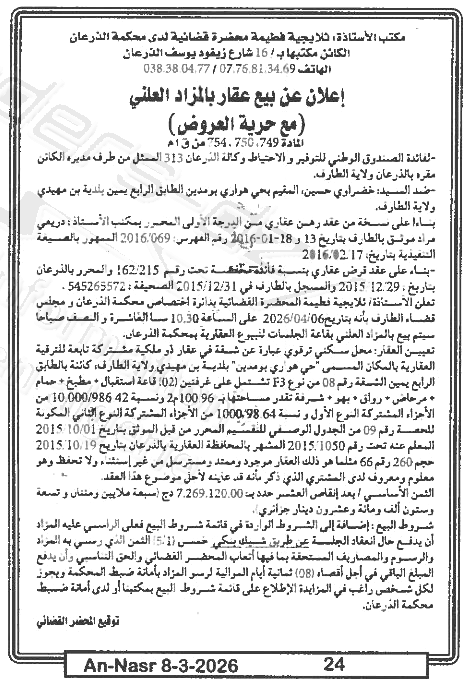 مكتب الأستاذة: ثلايجية فطيمة محضرة قضائية لدى محكمة الذرعان
الكائن مكتبها بـ / 16 شارع زيغود يوسف الذرعان
الهاتف 07/76.81.34.69 / 038.38.04.77
إعلان عن بيع عقار بالمزاد العلني
(مع حرية العروض)
المادة 749، 750، 754 من ق ا م
-لفائدة الصندوق الوطني للتوفير و الاحتياط وكالة الذرعان 313 الممثل من طرف مديره الكائن
مقره بالذرعان ولاية الطارف.
-ضد السيد: خضراوي حسين، المقيم بحي هواري بومدين الطابق الرابع يمين بلدية بن مهيدي
ولاية الطارف.
بناءا على نسخة من عقد رهن عقاري من الدرجة الأولى المحرر بمكتب الأستاذ: دريعي
مراد موثق بالطارف بتاريخ 13 و 18-01-2016 رقم الفهرس: 2016/069 الممهور بالصيغة
التنفيذية بتاريخ 2016/02.17،
-بناء على عقد قرض عقاري بنسبة فائدة تحت رقم 162/215 والمحرر بالذرعان
بتاريخ: 2015.12.29 والمسجل بالطارف في 2015/12/31 الصحيفة: 545265572
تعلن الأستاذة/ ثلايجية فطيمة المحضرة القضائية بدائرة اختصاص محكمة الذرعان و مجلس
قضاء الطارف بأنه بتاريخ 2026/04/06 على الساعة 10.30 سا العاشرة و النصف صباحا
سيتم بيع بالمزاد العلني بقاعة الجلسات للبيوع العقارية بمحكمة الذرعان.
تعيين العقار: محل سكني ترقوي عبارة عن شقة في عقار ذو ملكية مشتركة تابعة للترقية
العقارية بالمكان المسمى "حي هواري بومدين" بلدية بن مهيدي ولاية الطارف، كائنة بالطابق
الرابع يمين الشقة رقم 08 من نوع F3 تشتمل على غرفتين (02) قاعة استقبال + مطبخ + حمام
+ مرحاض + رواق + بهو + شرفة تقدر مساحتها بـ 100.96م2 ونسبة 42 986/10.000 من
الأجزاء المشتركة النوع الأول و نسبة 64 98/1000 من الأجزاء المشتركة النوع الثاني المكونة
للحصة رقم 09 من الجدول الوصفي للتقسيم المحرر من قبل الموثق بتاريخ 2015/10/01
المعلم عنه تحت رقم 2015/1050 المشهر بالمحافظة العقارية بالذرعان بتاريخ 2015/10/19
حجم 260 رقم 66 مثلما هو ذلك العقار موجود وممتد ومسترسل من غير إستثناء ولا تحفظ وهو
معلوم ومعروف لدى المشتري الذي ذكر بأنه قد عاينه لأجل موضوع هذا العقد.
الثمن الأساسي / بعد إنقاص العشر حدد بـ 7.269.120.00 دج (سبعة ملايين ومئتان و تسعة
وستون ألف ومائة وعشرون دينار جزائري)
شروط البيع: إضافة إلى الشروط الواردة في قائمة شروط البيع فعلى الراسي عليه المزاد
أن يدفع حال انعقاد الجلسة عن طريق شيك بنكي خمس (1/5) الثمن الذي رسي به المزاد
والرسوم والمصاريف المستحقة بما فيها أتعاب المحضر القضائي والحق التناسبي وأن يدفع
المبلغ الباقي في أجل أقصاه (08) ثمانية أيام الموالية لرسو المزاد بأمانة ضبط المحكمة ويجوز
لكل شخص راغب في المزايدة الإطلاع على قائمة شروط البيع بمكتبنا أو لدى أمانة ضبط
محكمة الذرعان.
توقيع المحضر القضائي
An-Nasr 8-3-2026 24